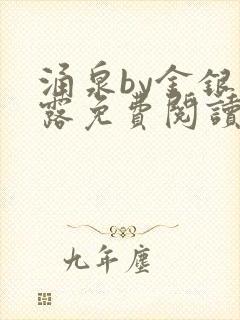 涌泉by金銀
露免費閱讀
九年塵